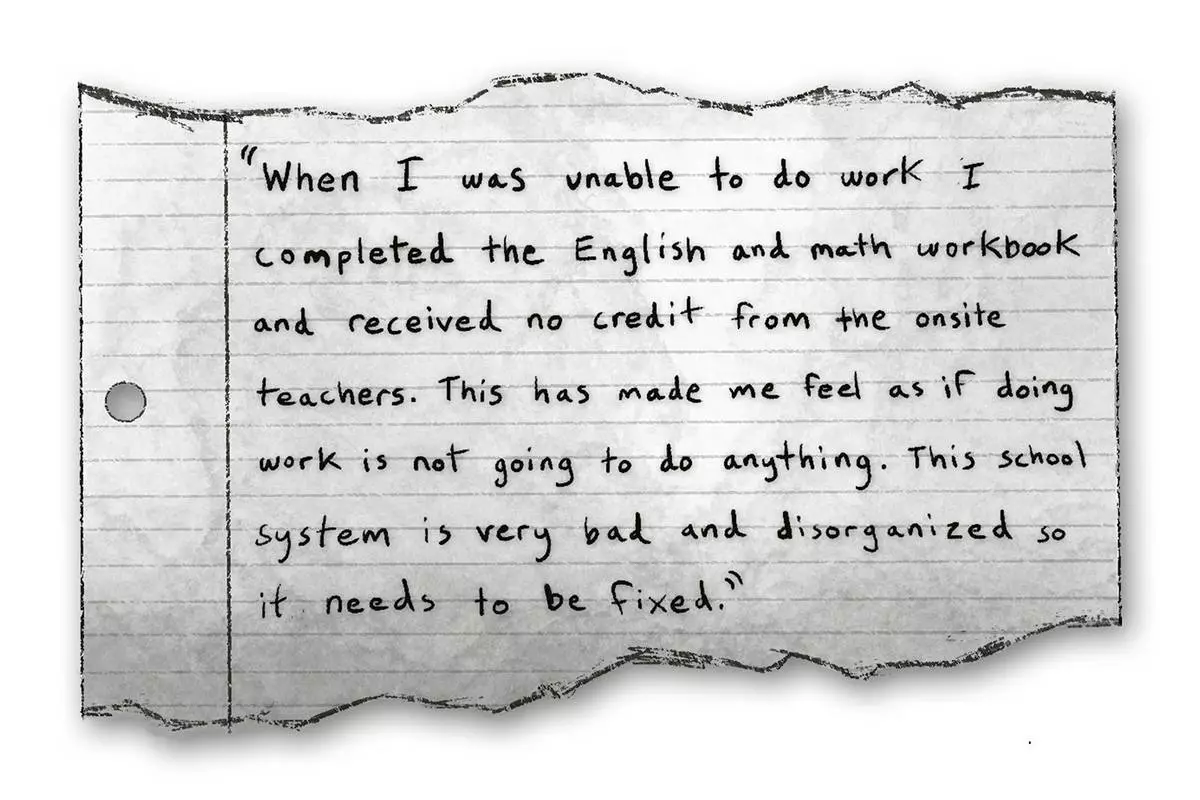 "When I was unable to do work I
completed the English and math workbook
and received no credit from the onsite
teachers. This has made me feel as if doing
work is not going to do anything. This school
system is very bad and disorganized so
it needs to be fixed."